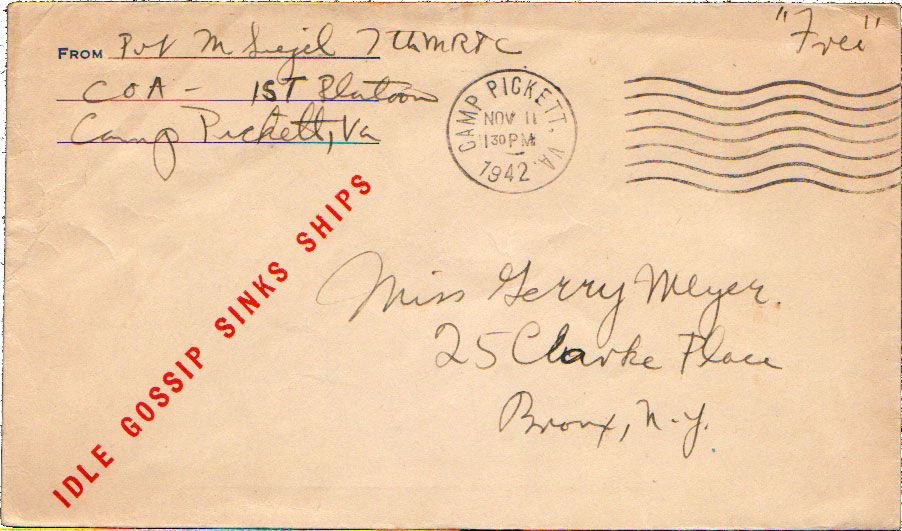 FROM Pvt M Siegel 7th MRTC
CO A - 1ST Platoon
Camp Pickett, Va
"Free"
CAMP PICKETT, VA.
NOV 11
1 30 PM
1942
IDLE GOSSIP SINKS SHIPS
Miss Gerry Meyer.
25 Clarke Place
Bronx, N.Y.